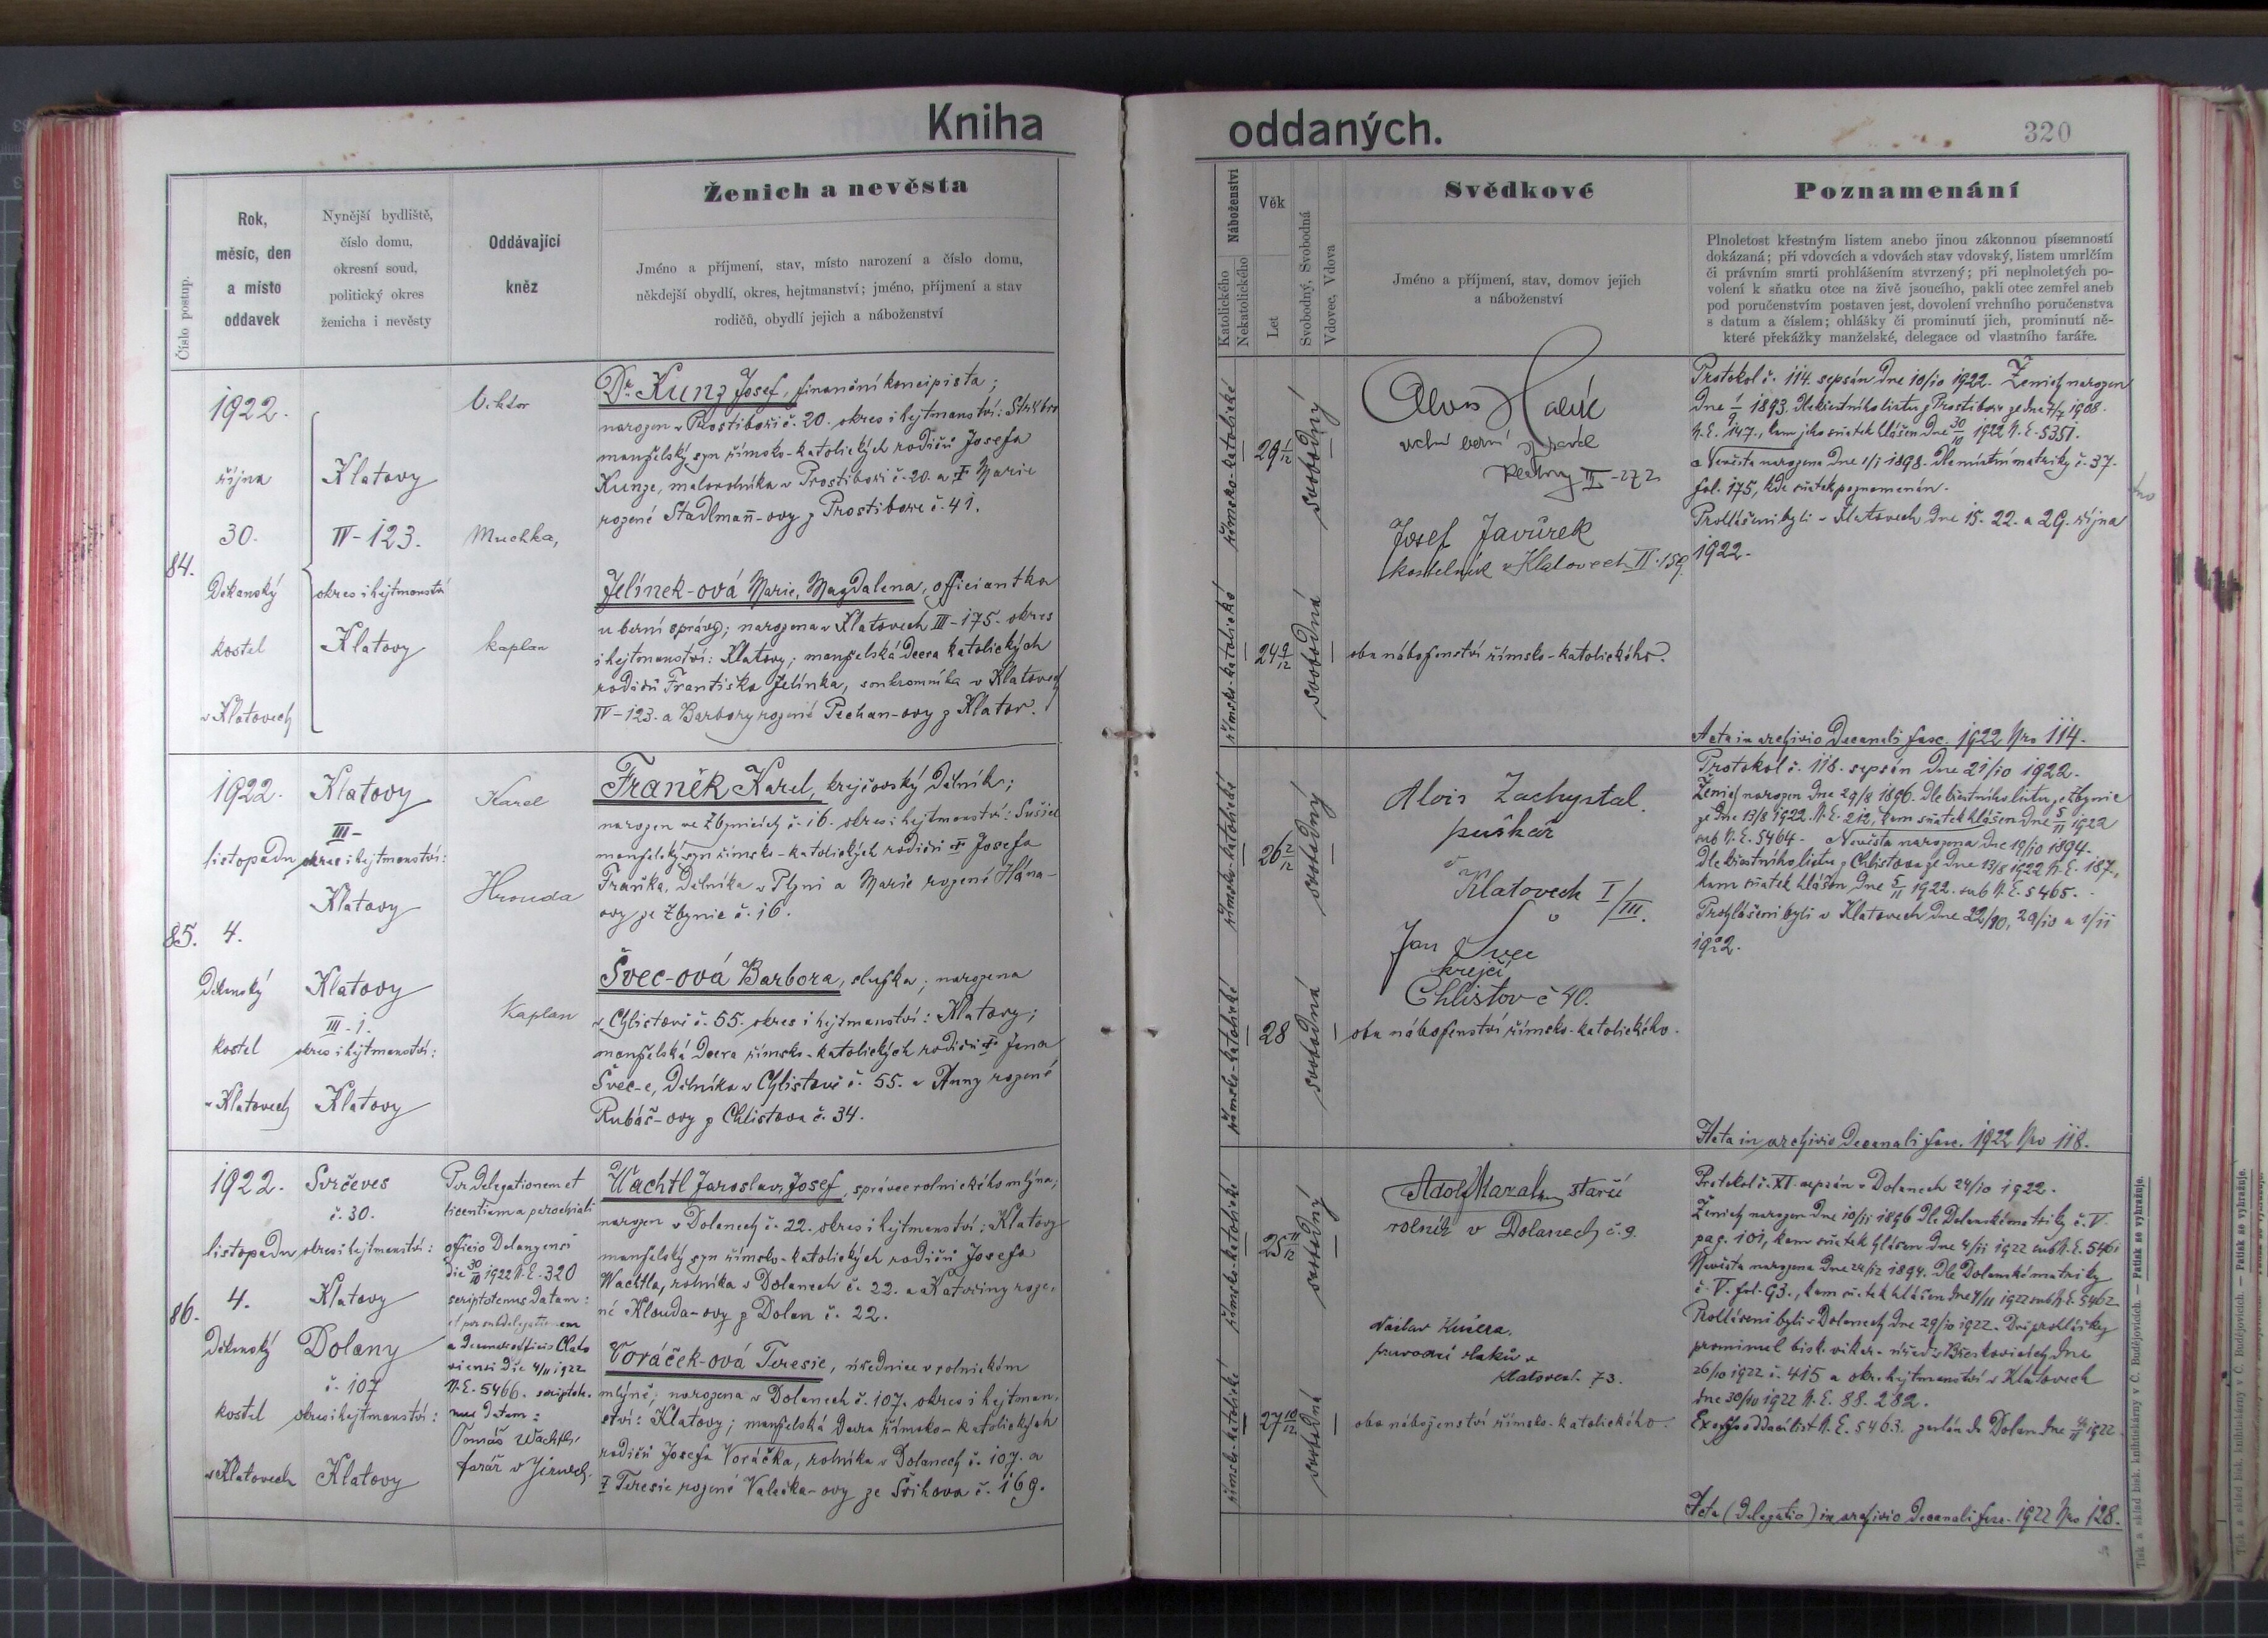 Kniha oddaných.
320
Číslo postup.
Rok,
měsíc, den
a místo
oddavek
Nynější bydliště,
číslo domu,
okresní soud,
politický okres
ženicha i nevěsty
Oddávající
kněz
Ženich a nevěsta
Jméno a příjmení, stav, místo narození a číslo domu,
někdejší obydlí, okres, hejtmanství; jméno, příjmení a stav
rodičů, obydlí jejich a náboženství
Náboženství
Katolického
Nekatolického
Věk
Let
Svobodný, Svobodná
Vdovec, Vdova
Svědkové
Jméno a příjmení, stav, domov jejich
a náboženství
Poznamenání
Plnoletost křestným listem anebo jinou zákonnou písemností
dokázaná; při vdovcích a vdovách stav vdovský, listem umrlčím
či právním smrti prohlášením stvrzený; při neplnoletých po-
volení k sňatku otce na živě jsoucího, pakli otec zemřel aneb
pod poručenstvím postaven jest, dovolení vrchního poručenstva
s datum a číslem; ohlášky či prominutí jich, prominutí ně-
které překážky manželské, delegace od vlastního faráře.
84.
1922.
října
30.
Děkanský
kostel
v Klatovech
Klatovy
IV-123.
okres i hejtmanství
Klatovy
Viktor
Muchka,
kaplan
Dr. Kunz Josef, finanční koncipista;
narozen v Prostiboři č. 20. okres i hejtmanství: Stříbro
manželský syn římsko-katolických rodičů Josefa
Kunze, malorolníka v Prostiboři č. 20. a † Marie
rozené Stadlman̄-ovy z Prostiboře č. 41.
Jelínek-ová Marie, Magdalena, officiantka
u berní správy; narozena v Klatovech III-175. okres
i hejtmanství: Klatovy; manželská dcera katolických
rodičů Františka Jelínka, soukromníka v Klatovech
IV-123. a Barbory rozené Pechan-ovy z Klatov.
římsko-katolické
29 1/12
svobodný
římsko-katolické
24 9/12
svobodná
Alois
vrchní berní správce
Klatovy III-272
Josef Javůrek
kostelník v Klatovech II. 159.
oba náboženství římsko-katolického.
Protokol č. 114. sepsán dne 10/10 1922. Ženich narozen
1922.
Prohlášeni byli v Klatovech dne 15. 22. a 29. října
fol. 175, kde sňatek poznamenán.
Acta in archivio Decanali fasc. 1922 Nro 114.
85.
1922.
listopadu
4.
Děkanský
kostel
v Klatovech
Klatovy
III-
okres i hejtmanství:
Klatovy
Klatovy
III-1.
okres i hejtmanství:
Klatovy
Karel
Hrouda
Kaplan
Franěk Karel, krejčovský dělník;
narozen ve Zbynicích č. 16. okres i hejtmanství: Sušice
manželský syn římsko-katolických rodičů † Josefa
Fraňka, dělníka v Plzni a Marie rozené Hána-
ovy ze Zbynic č. 16.
Švec-ová Barbora, služka; narozena
v Chlistově č. 55. okres i hejtmanství: Klatovy;
manželská dcera římsko-katolických rodičů † Jana
Švec-e, dělníka v Chlistově č. 55. a Anny rozené
Rubáš-ovy z Chlistova č. 34.
římsko-katolické
26 2/12
svobodný
římsko-katolické
28
svobodná
Alois Zachystal.
puškař
v Klatovech I/III.
Jan Švec
krejčí
Chlistov č 40.
oba náboženství římsko-katolického.
Protokol č. 118. sepsán dne 21/10 1922.
Ženich narozen dne 29/8 1896. Dle křestního listu ze Zbynic
ze dne 13/8 1922. N.E. 212, kam sňatek hlášen dne 5/11 1922
sub N.E. 5464. Nevěsta narozena dne 19/10 1894.
Dle křestního listu z Chlistova ze dne 13/8 1922 N.E. 187,
kam sňatek hlášen dne 5/11 1922. sub N.E. 5465.
Prohlášeni byli v Klatovech dne 22/10, 29/10 a 1/11
1922.
Acta in archivio Decanali fasc. 1922 Nro 118.
86.
1922.
listopadu
4.
Děkanský
kostel
v Klatovech
Svrčeves
č. 30.
okres i hejtmanství:
Klatovy
Dolany
č. 107
okres i hejtmanství:
Klatovy
Per delegationem et
licentiam a parochiali
officio Dolanensi
die 30/10 1922 N.E. 320
scriptotenus datam:
et per subdelegationem
die 4/11 1922
N.E. 5466. scriptote-
nus datam:
Tomáš Wachtl,
farář v
Wachtl Jaroslav, Josef, správce rolnického mlýna;
narozen v Dolanech č. 22. okres i hejtmanství: Klatovy
manželský syn římsko-katolických rodičů Josefa
Wachtla, rolníka v Dolanech č. 22. a Kateřiny roze-
né Klouda-ovy z Dolan č. 22.
Voráček-ová Teresie, úřednice v rolnickém
mlýně; narozena v Dolanech č. 107. okres i hejtman-
ství: Klatovy; manželská dcera římsko-katolických
rodičů Josefa Voráčka, rolníka v Dolanech č. 107. a
† Teresie rozené Valečka-ovy ze Svihova č. 169.
římsko-katolické
25 11/12
svobodný
římsko-katolické
27 10/12
svobodná
Adolf starší
rolník v Dolanech č. 9.
Václav Kučera,
průvodčí vlaků v
Klatovech 73.
oba náboženství římsko-katolického
Protokol č. XI. sepsán v Dolanech 24/10 1922.
Ženich narozen dne 10/11 1896 Dle Dolanské matriky č. V.
pag. 101, kam sňatek hlášen dne 4/11 1922 sub N.E. 5461
Nevěsta narozena dne 24/12 1894. Dle Dolanské matriky
č. V. fol. 93., kam sňatek hlášen dne 4/11 1922 sub N.E. 5462
Prohlášeni byli v Dolanech dne 29/10 1922. Dvě prohlášky
prominul bisk. vikar. úřad v dne
26/10 1922 č. 415 a okr. hejtmanství v Klatovech
dne 30/10 1922 N.E. 88.282.
Ex offo oddací list N.E. 5463. zaslán do Dolan dne 4/11 1922.
Acta (Delegatio) in archivio Decanali fasc. 1922 Nro 128.
Tisk a sklad bisk. knihtiskárny v Č. Budějovicích. — Patisk se vyhražuje.